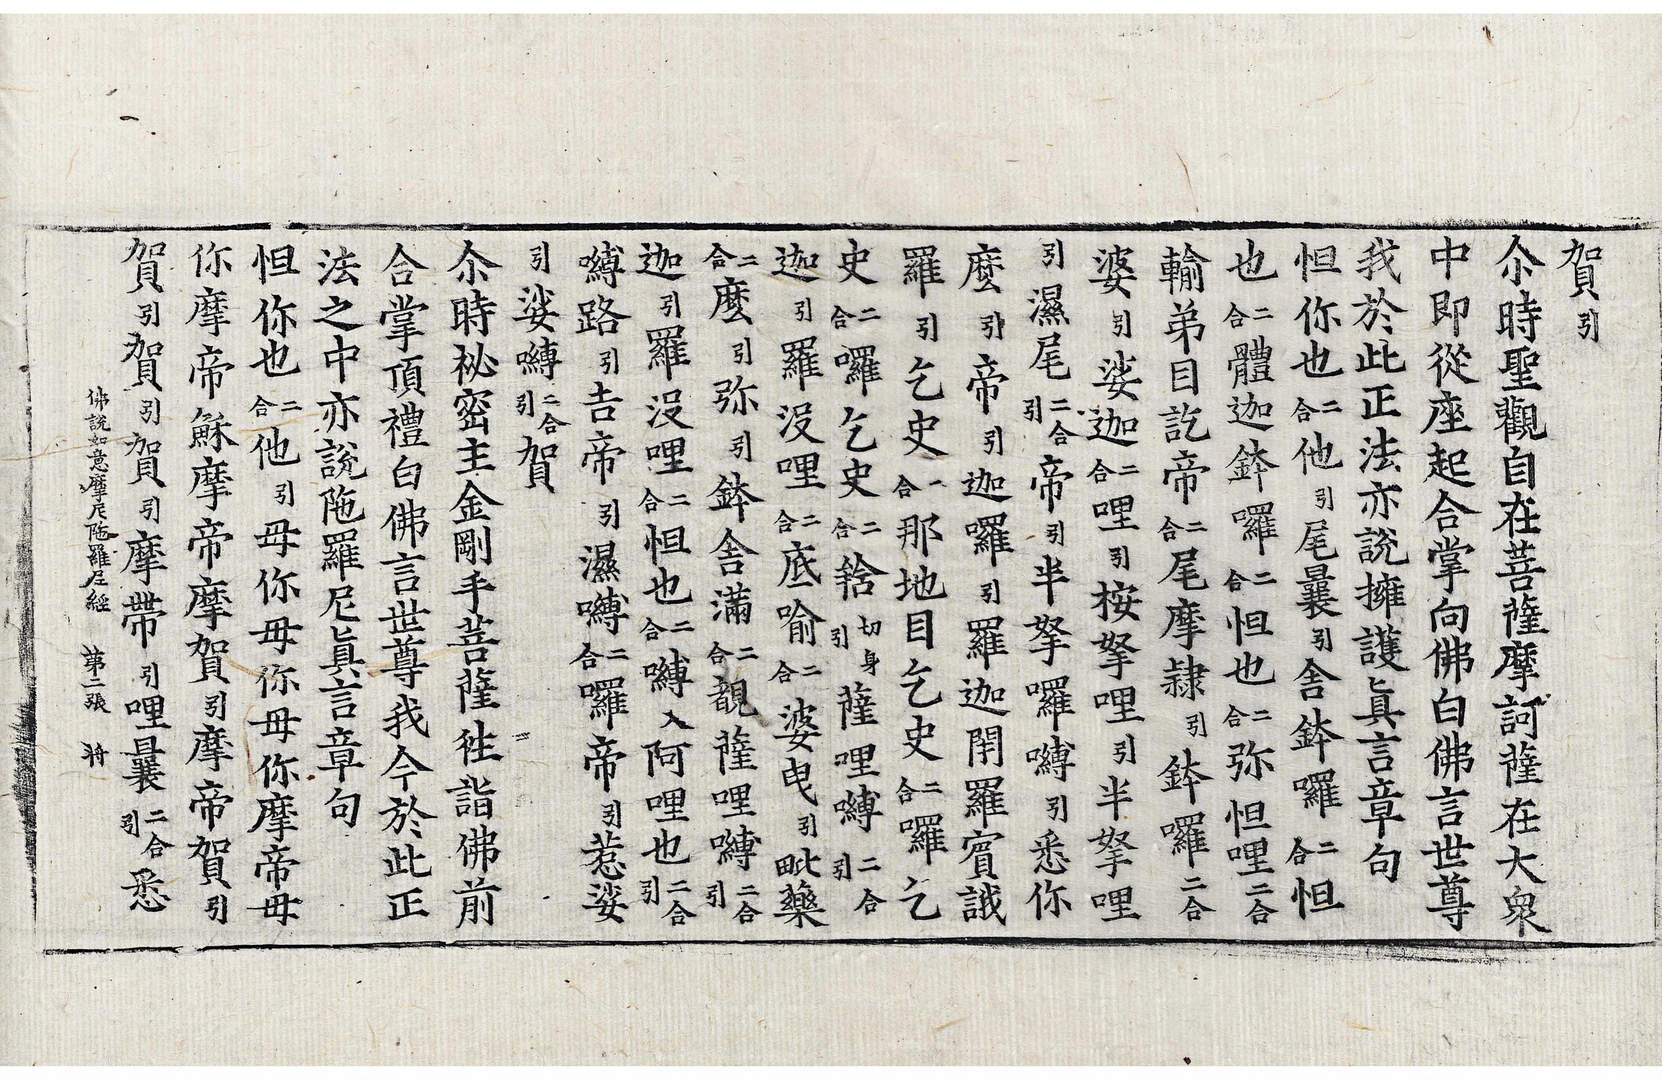 賀引
尒時聖觀自在菩薩摩訶薩在大衆
中即從座起合掌向佛白佛言世尊
我於此正法亦說擁護眞言章句
怛你也二合他引尾曩引舍鉢囉二合怛
也二合體迦鉢囉二合怛也二合弥怛哩二合
輸弟目訖帝二合尾摩隷引鉢囉二合
婆引娑迦二合哩引桉拏哩引半拏哩
引濕尾二合引帝引半拏囉嚩引悉你
麼引帝引迦囉引羅迦閇羅賓誐
羅引乞史一合那地目乞史二合囉乞
史二合囉乞史二合捨切身引薩哩嚩二合引
迦引羅没哩二合底喻二合婆曳引毗藥
二合麼引弥引鉢舍滿二合覩薩哩嚩二合引
迦引羅没哩二合怛也二合嚩入阿哩也二合引
嚩路引吉帝引濕嚩二合囉帝引惹娑
引娑嚩二合引賀
尒時祕密主金剛手菩薩徃詣佛前
合掌頂禮白佛言世尊我今於此正
法之中亦說陁羅尼眞言章句
怛你也二合他引毋你毋你毋你摩帝毋
你摩帝穌摩帝摩賀引摩帝賀引
賀引賀引賀引摩帶引哩曩二合引悉
佛說如意摩尼陁羅尼經 第二張 將